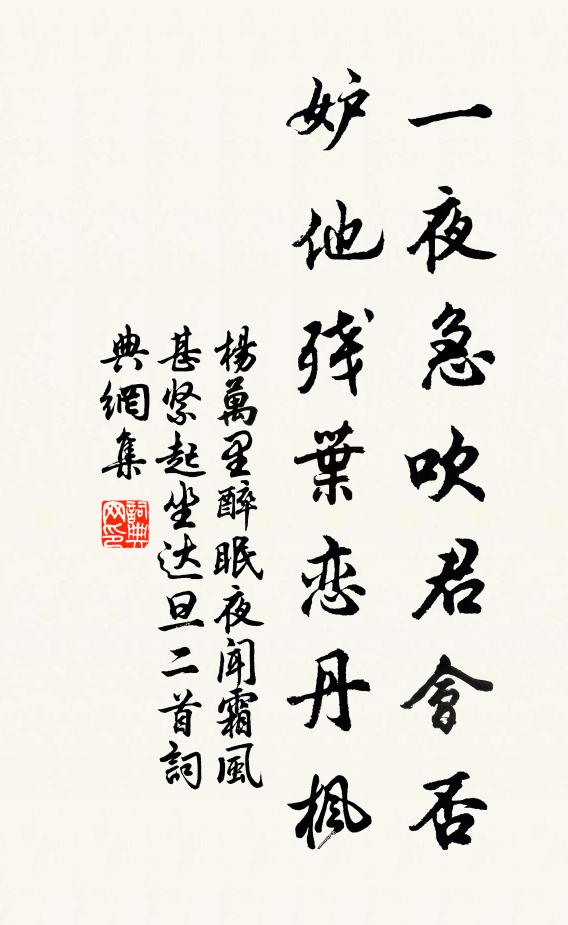 一夜急吹君會否
妒他残葉恋丹楓
楊萬里醉眠夜聞霜風
甚紧起坐达旦二首詞
典網集
詞典
网印